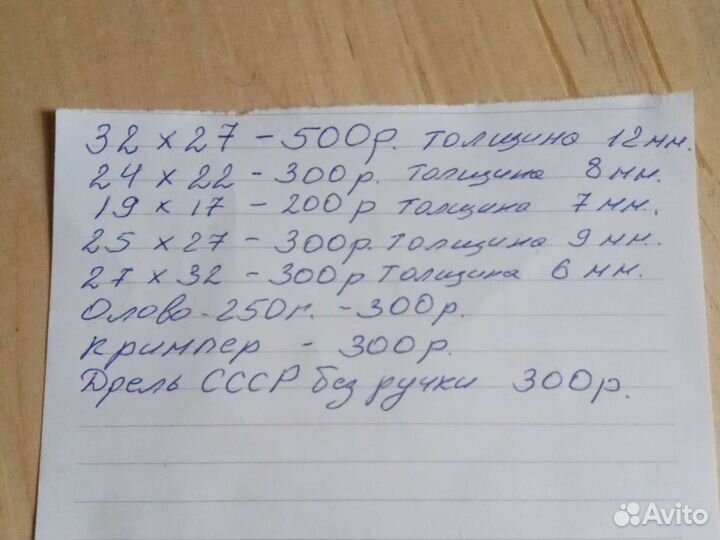 32 x 27 - 500р. толщина 12 мм.
24 x 22 - 300р. толщина 8 мм.
19 x 17 - 200р толщина 7 мм.
25 x 27 - 300р. толщина 9 мм.
27 x 32 - 300р толщина 6 мм.
Олово - 250 г. - 300р.
кримпер - 300р.
Дрель СССР без ручки 300р.
Avito